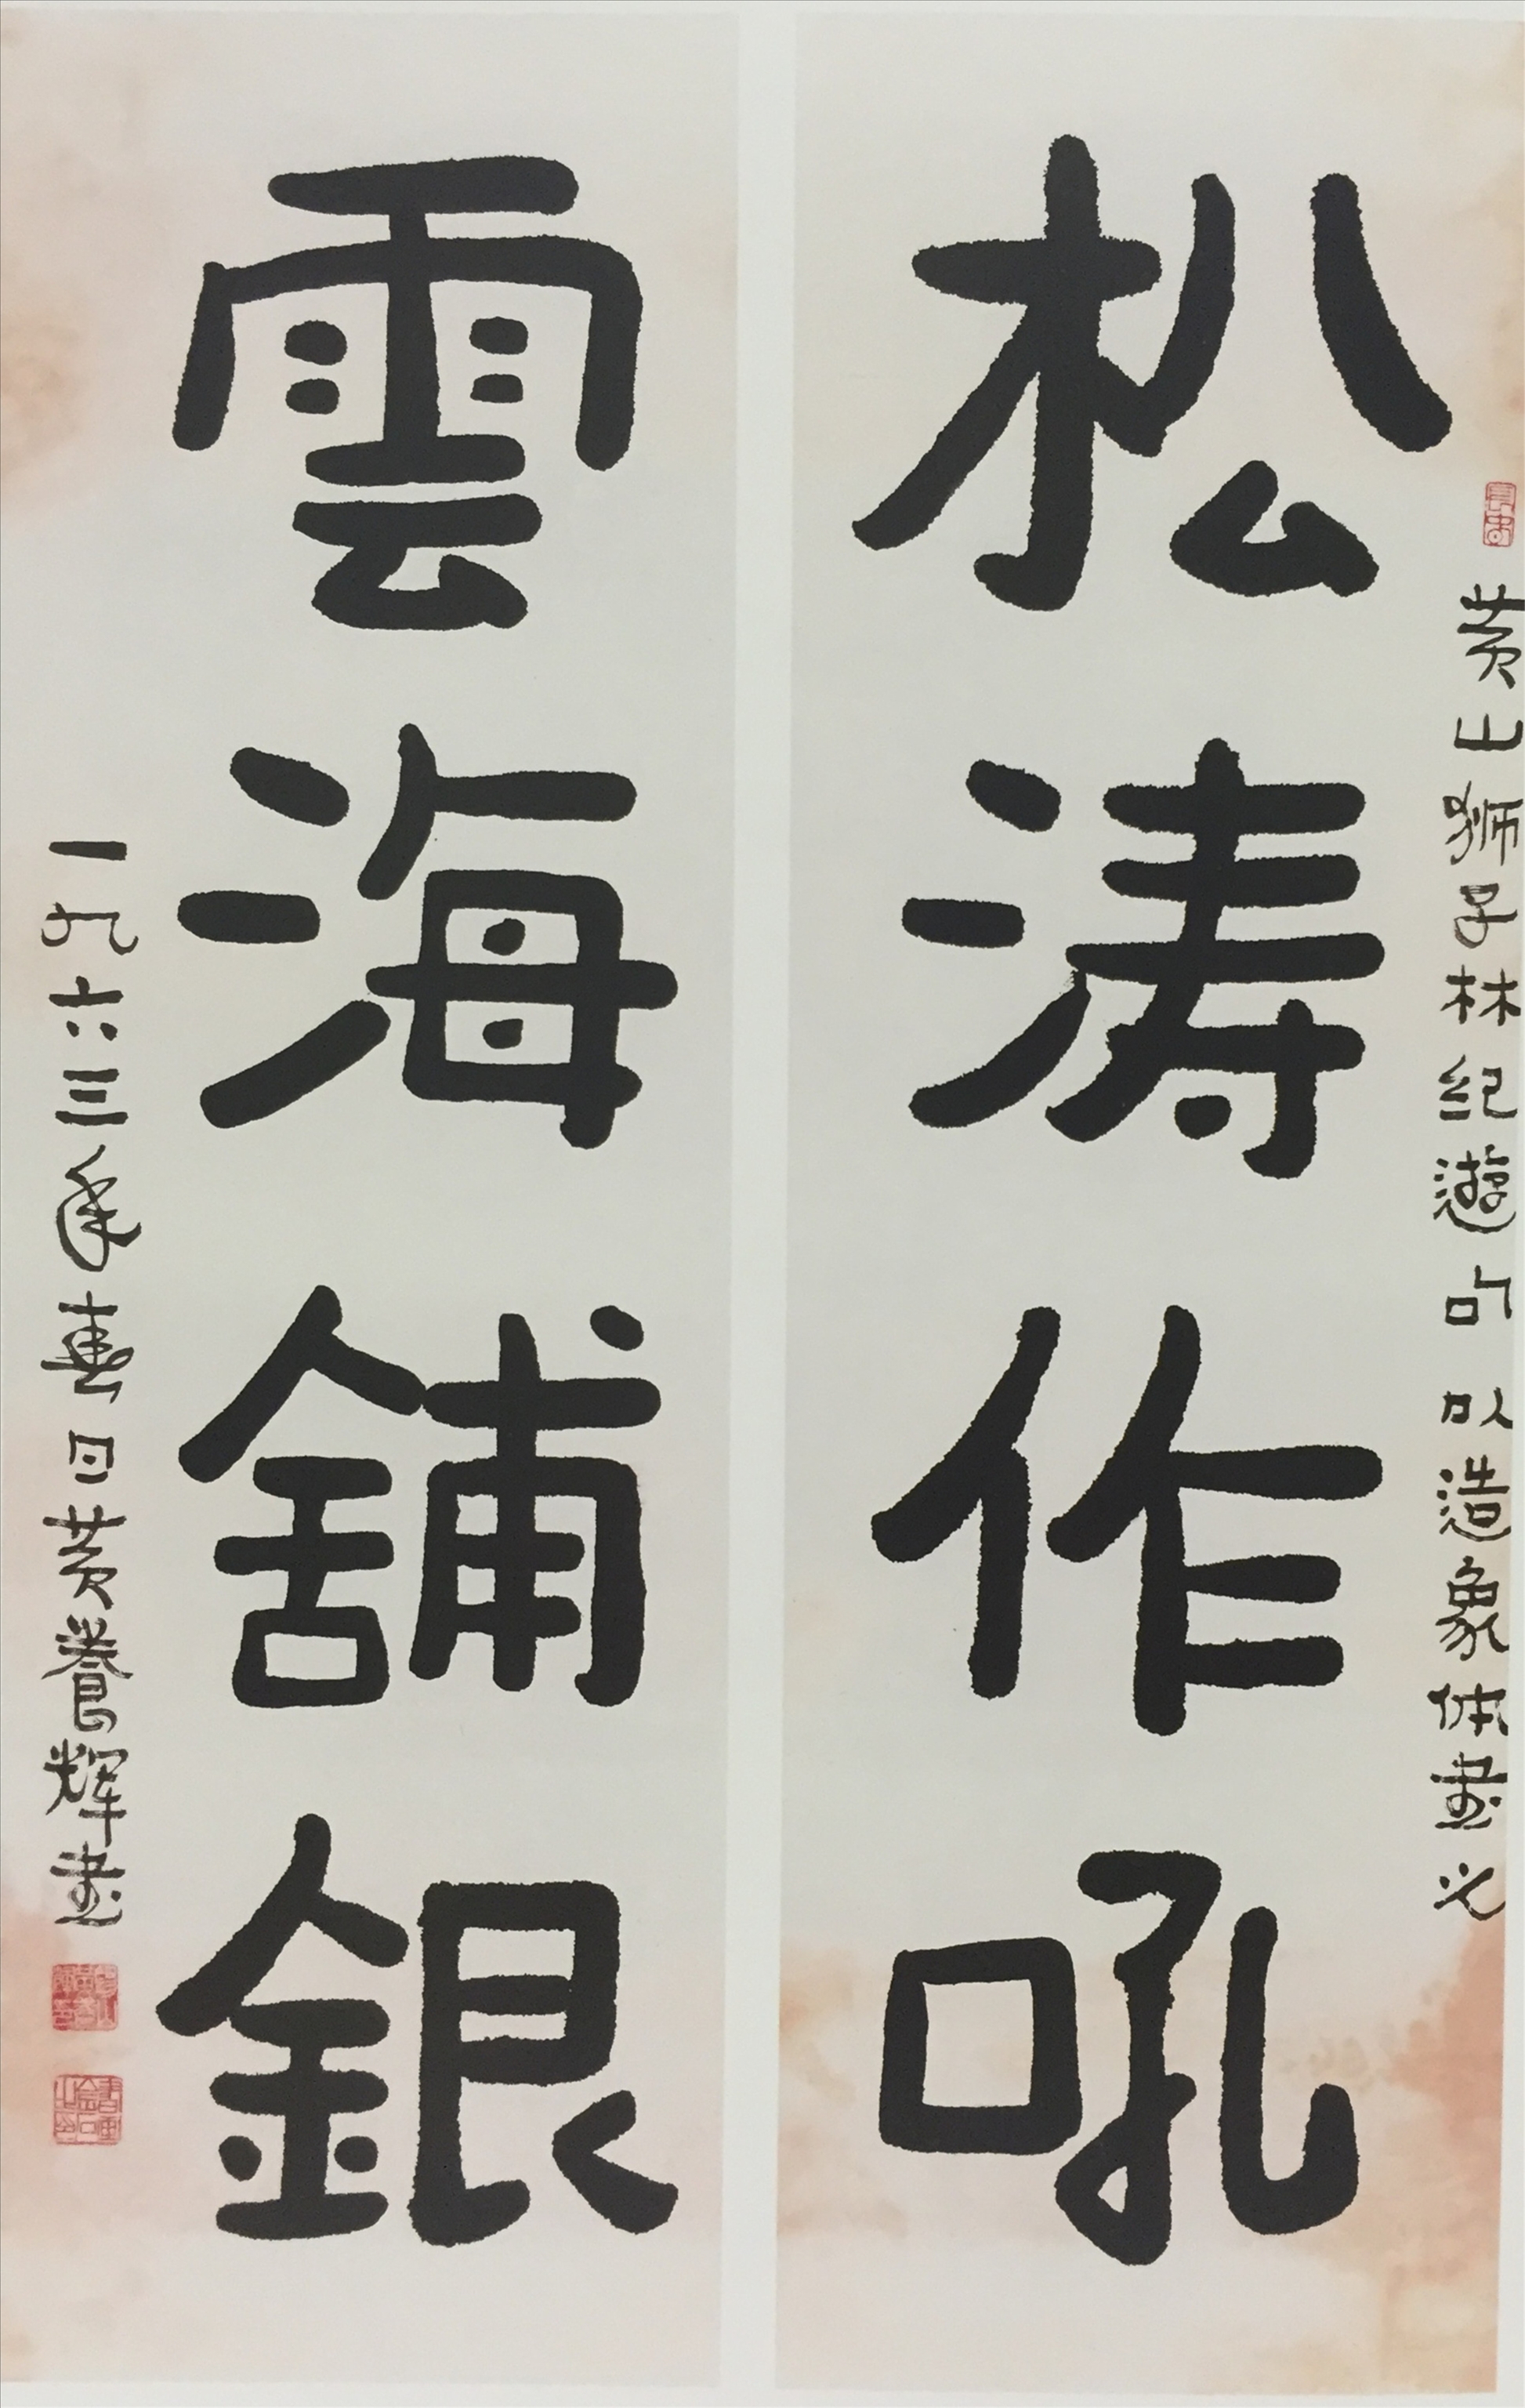 黄山狮子林纪遊句以造象体書之
松涛作吼
雲海舖銀
一九六三年春日黄養辉書